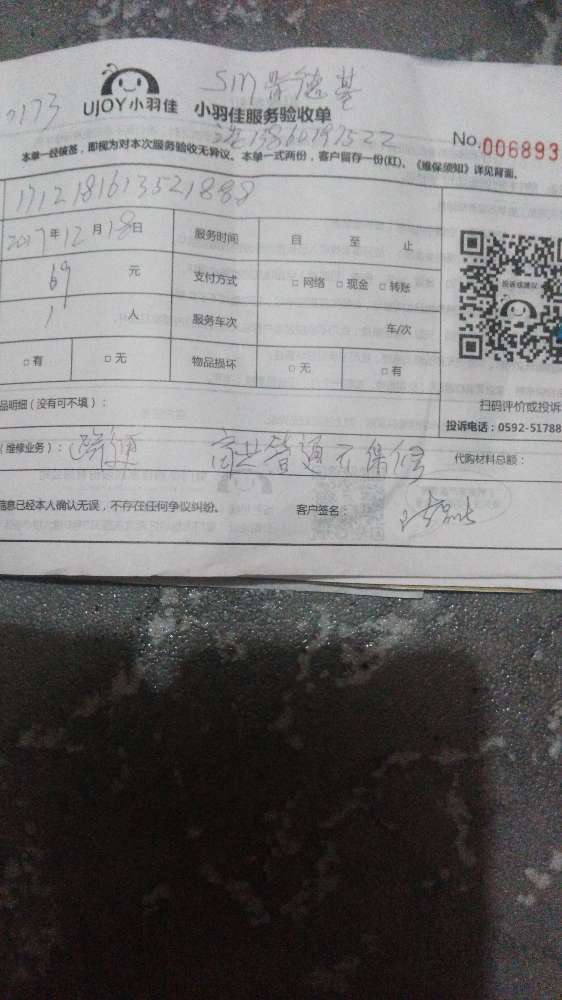 SM肯德基
UJOY小羽佳 小羽佳服务验收单
13860197522
No.006893
本单一经破签,即视为对本次服务验收无异议。本单一式两份,客户留存一份(红)。《维保须知》详见背面。
1712181613521888
2017年12月18日 服务时间 自 至 止
69 元 支付方式 □网络 □现金 □转账
投诉或建议
1 人 服务车次 车/次
□有 □无 物品损坏 □无 □有
品明细(没有可不填):
扫码评价或投诉
投诉电话:0592-51788
(维修业务): 商业管道不保修 代购材料总额:
信息已经本人确认无误,不存在任何争议纠纷。 客户签名: